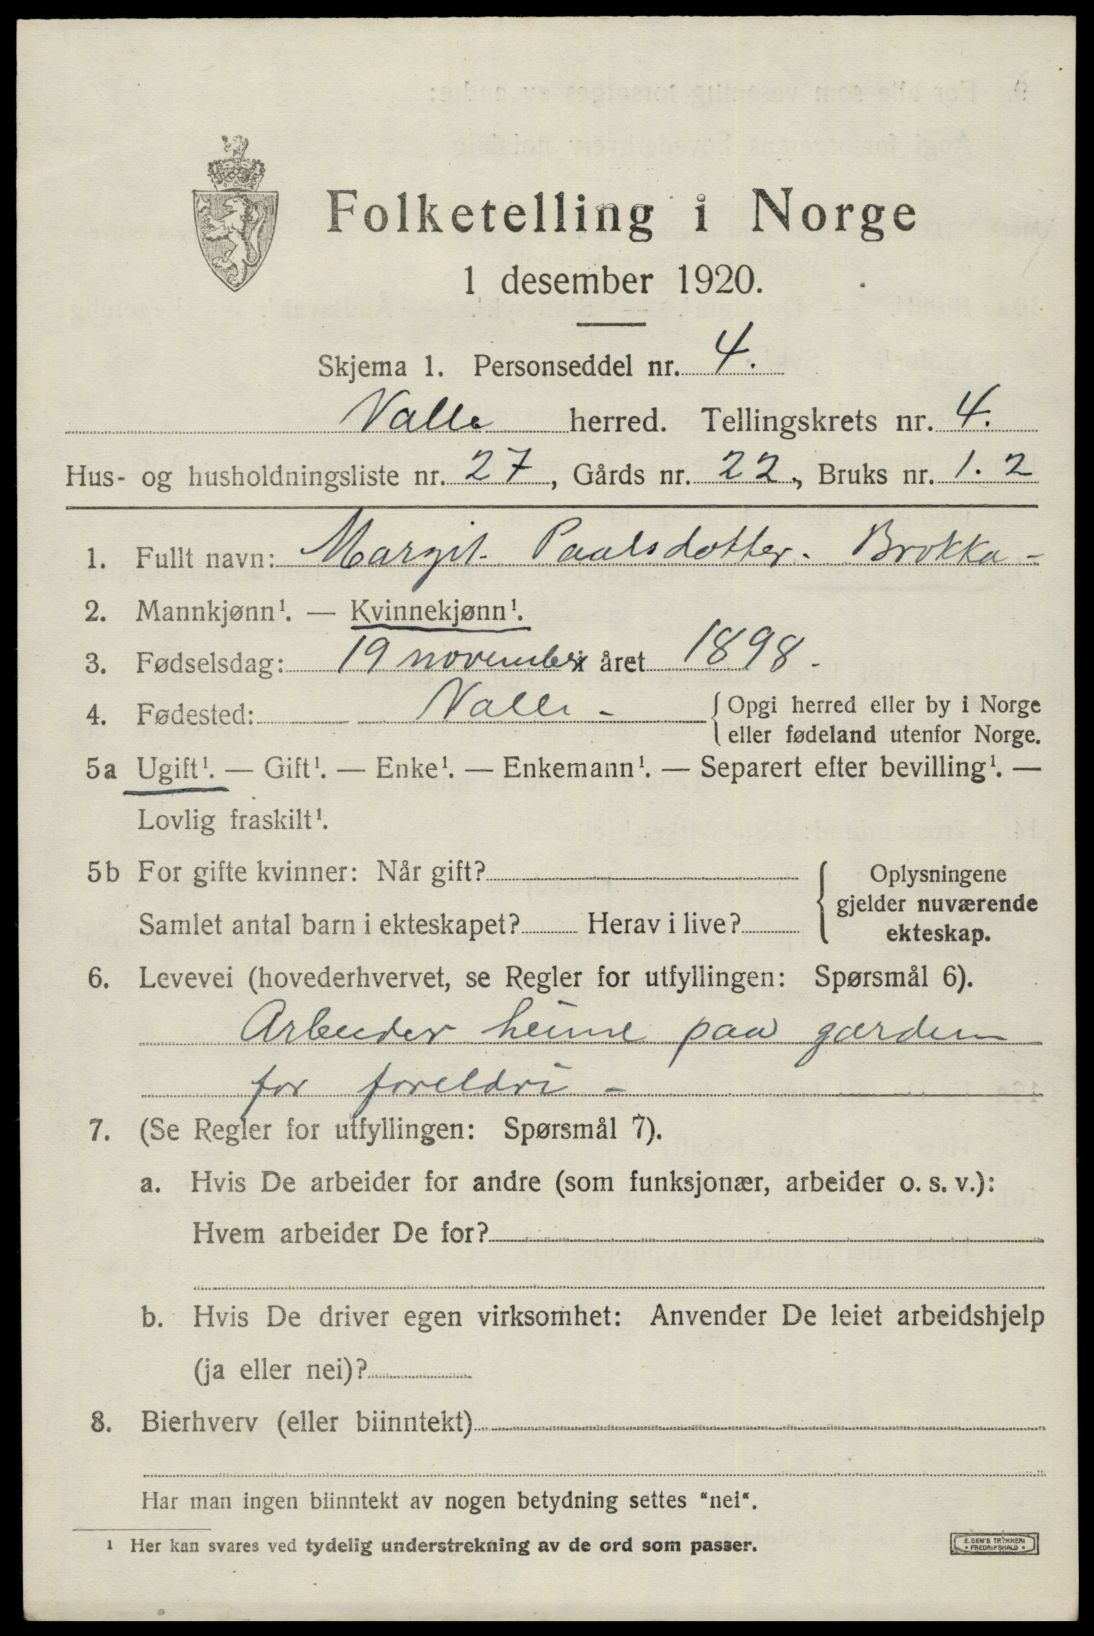 Folketelling i Norge
1 desember 1920.
Skjema 1. Personseddel nr. 4.
Valle herred. Tellingskrets nr. 4.
Hus- og husholdningsliste nr. 27, Gårds nr. 22, Bruks nr. 1. 2
1. Fullt navn: Margit Paalsdotter. Brokka -
2. Mannkjønn¹. — Kvinnekjønn¹.
3. Fødselsdag: 19 november i året 1898.
4. Fødested: Valle - { Opgi herred eller by i Norge
eller fødeland utenfor Norge.
5a Ugift¹. — Gift¹. — Enke¹. — Enkemann¹. — Separert efter bevilling¹. —
Lovlig fraskilt¹.
5b For gifte kvinner: Når gift? { Oplysningene
gjelder nuværende
Samlet antal barn i ekteskapet? Herav i live? ekteskap.
6. Levevei (hovederhvervet, se Regler for utfyllingen: Spørsmål 6).
Arbeider heime paa garden
for foreldri -
7. (Se Regler for utfyllingen: Spørsmål 7).
a. Hvis De arbeider for andre (som funksjonær, arbeider o. s. v.):
Hvem arbeider De for?
b. Hvis De driver egen virksomhet: Anvender De leiet arbeidshjelp
(ja eller nei)?
8. Bierhverv (eller biinntekt)
Har man ingen biinntekt av nogen betydning settes "nei".
¹ Her kan svares ved tydelig understrekning av de ord som passer.
E. SEM'S TRYKKERI
FREDRIKSHALD